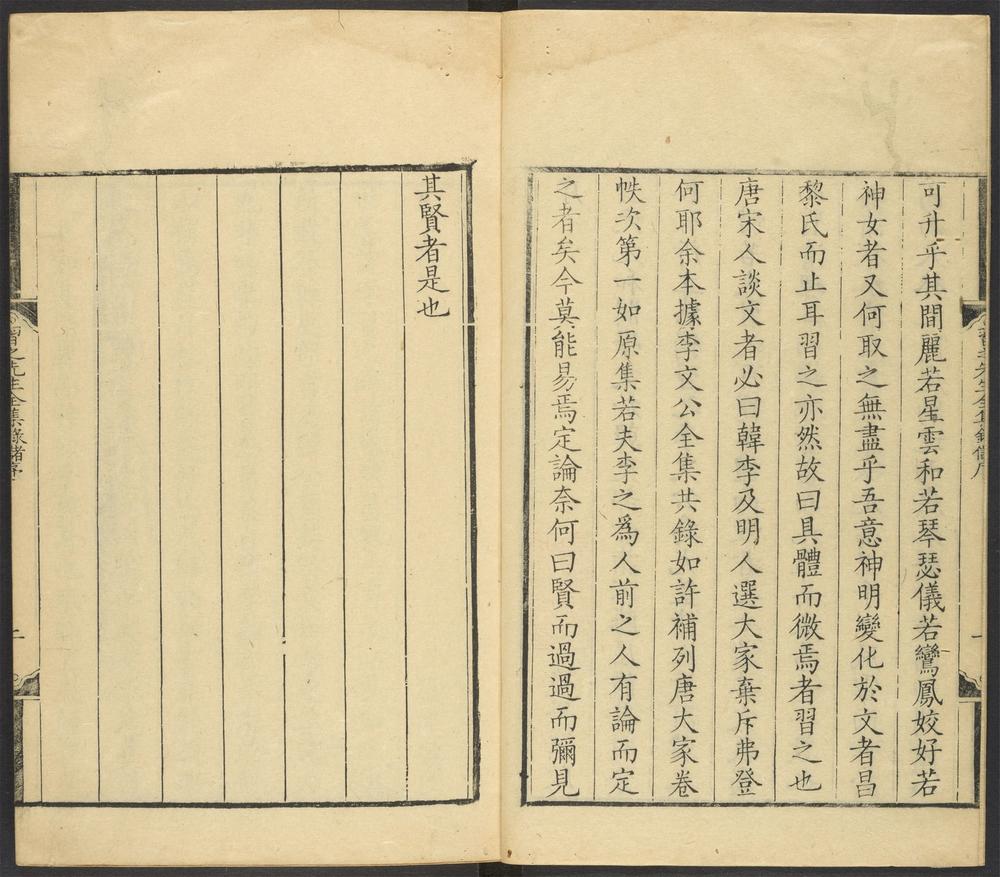 可升乎其間麗若星雲和若琴瑟儀若鸞鳳姣好若
神女者又何取之無盡乎吾意神明變化於文者昌
黎氏而止耳習之亦然故曰具體而微焉者習之也
唐宋人談文者必曰韓李及明人選大家棄斥弗登
何耶余本據李文公全集共錄如許補列唐大家卷
帙次第一如原集若夫李之爲人前之人有論而定
之者矣今莫能易焉定論奈何曰賢而過過而彌見
其賢者是也
習之先生全集錄緒序